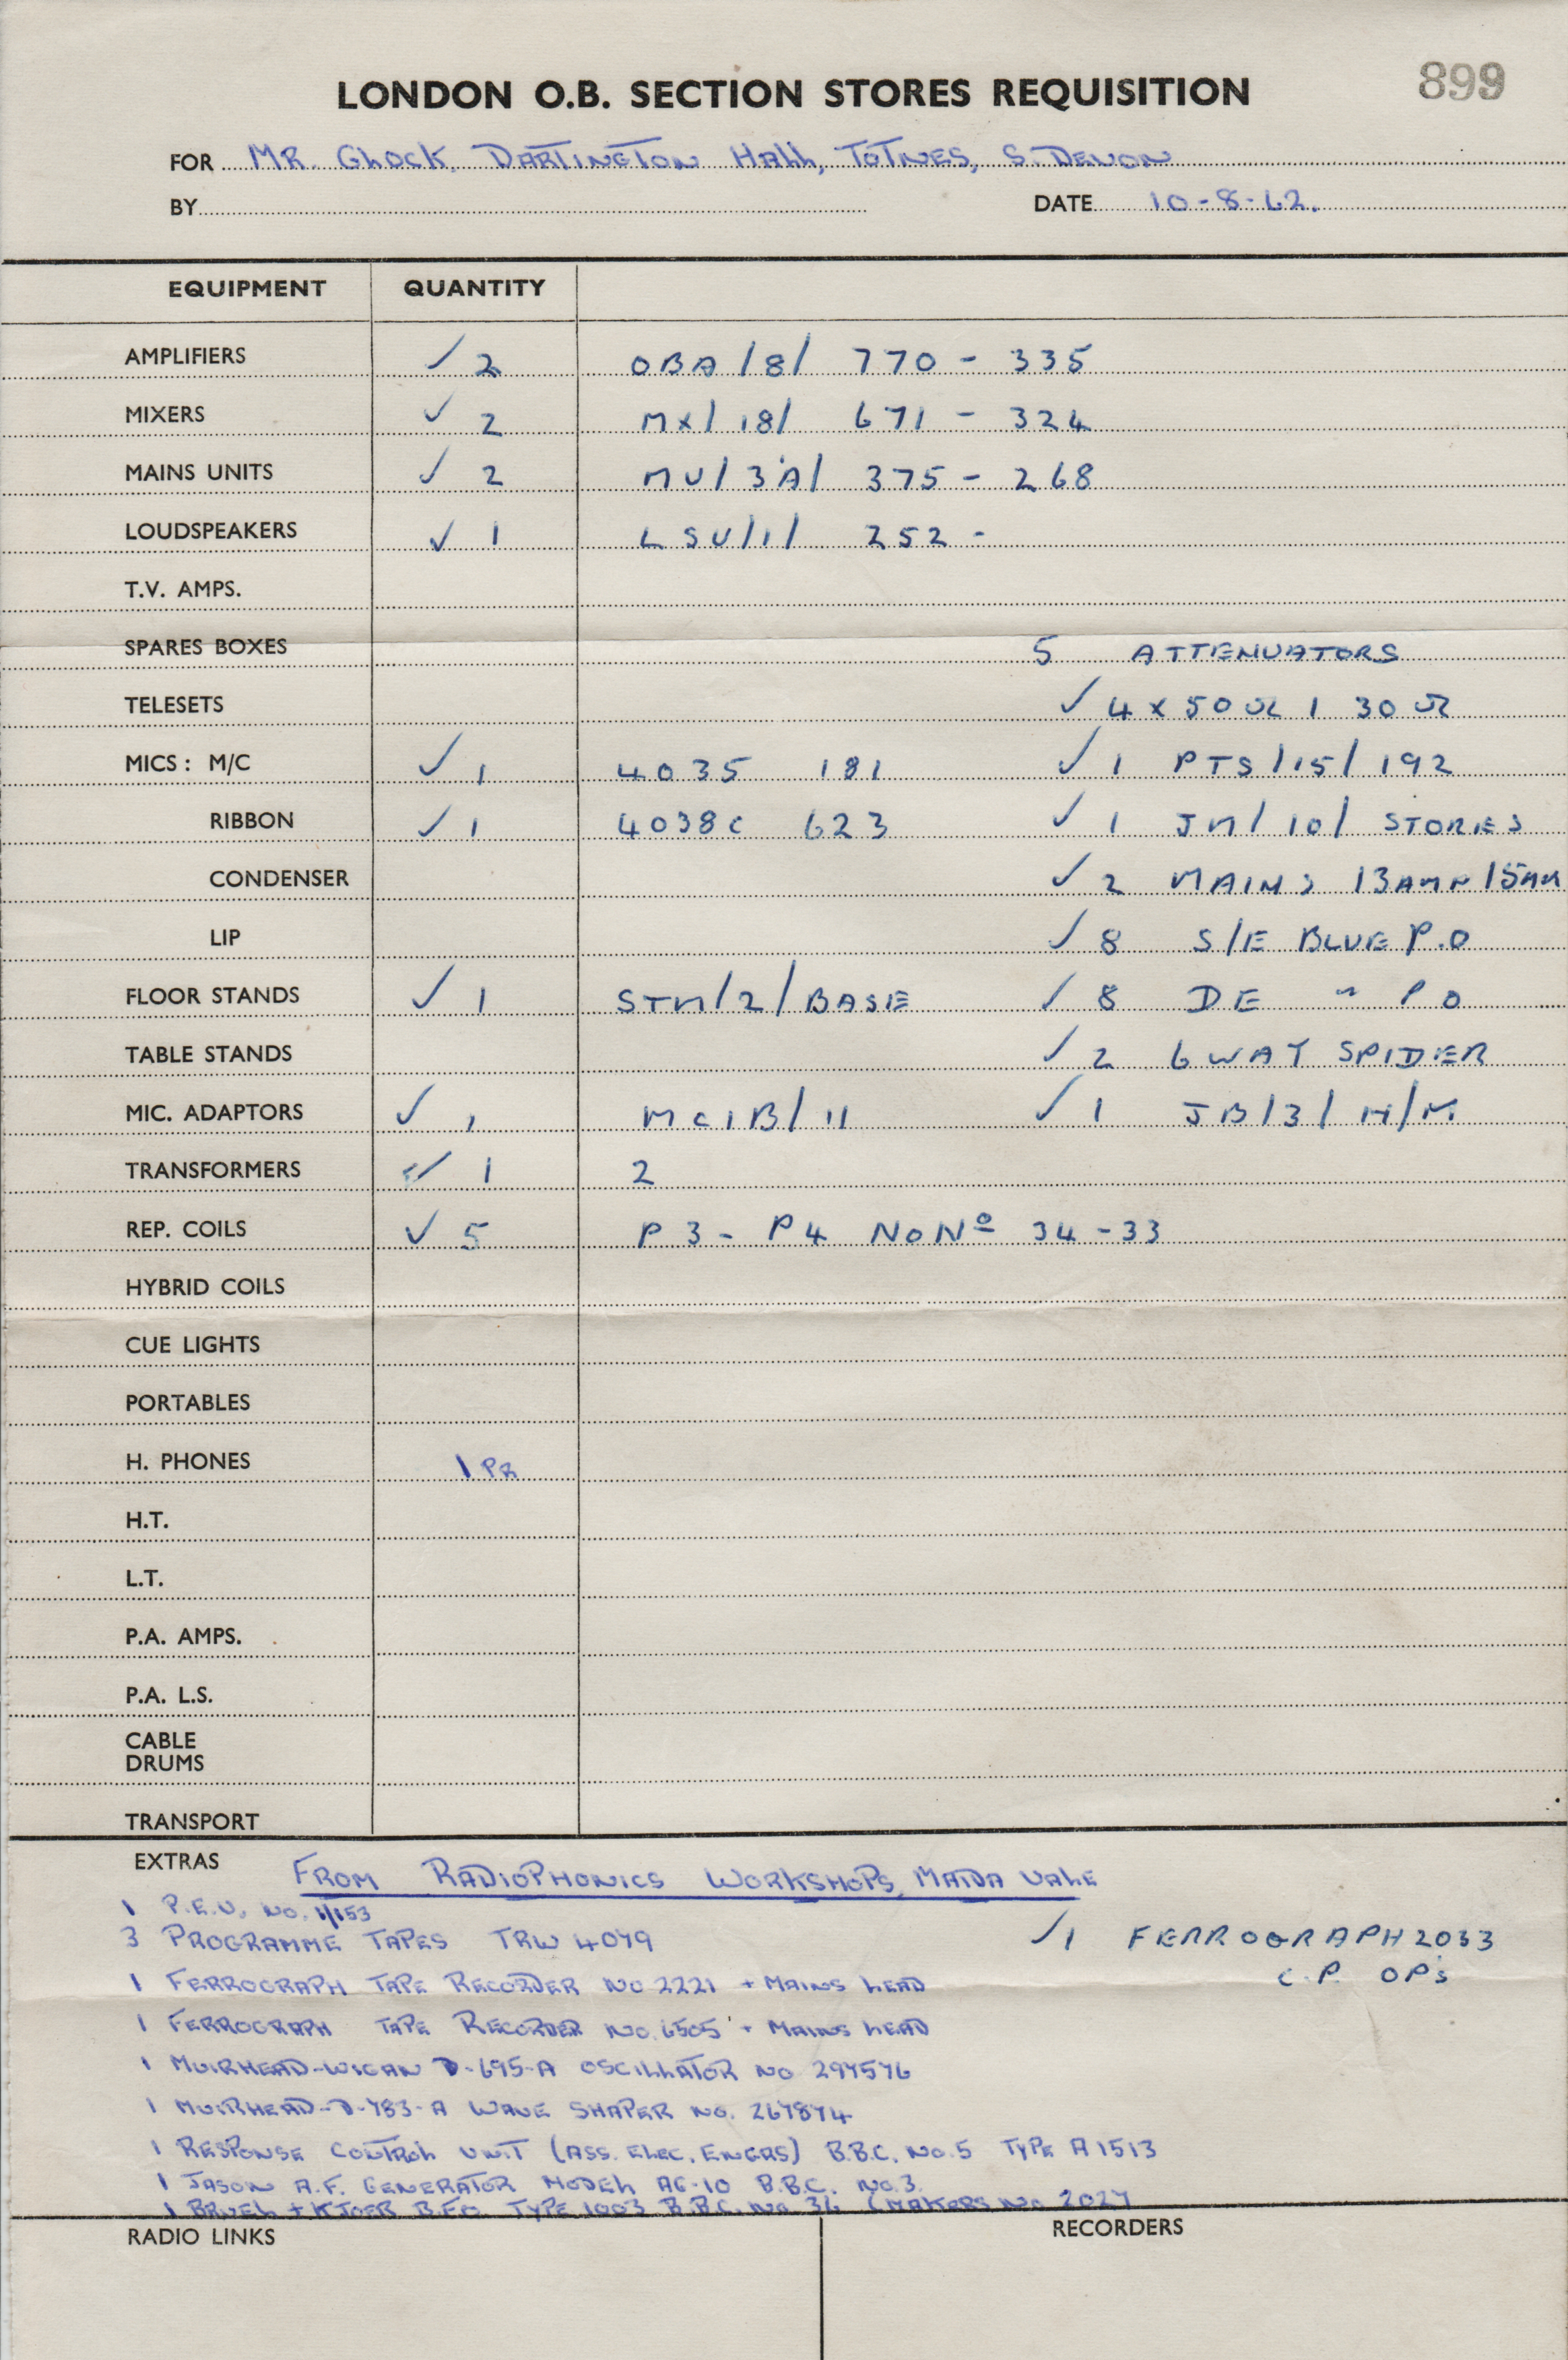 899
LONDON O.B. SECTION STORES REQUISITION
FOR MR. GLOCK, DARTINGTON HALL, TOTNES, S. DEVON
BY DATE 10-8-62.
EQUIPMENT QUANTITY
AMPLIFIERS ✓ 2 OBA/8/ 770 - 335
MIXERS ✓ 2 MX/18/ 671 - 324
MAINS UNITS ✓ 2 MU/3A/ 375 - 268
LOUDSPEAKERS ✓ 1 LSU/1/ 252 -
T.V. AMPS.
SPARES BOXES 5 ATTENUATORS
TELESETS ✓ 4 x 50 Ω 1 30 Ω
MICS: M/C ✓ 1 4035 181 ✓ 1 PTS/15/192
RIBBON ✓ 1 4038C 623 ✓ 1 JM/10/ STORES
CONDENSER ✓ 2 MAINS 13AMP/5AM
LIP ✓ 8 S/E BLUE P.O
FLOOR STANDS ✓ 1 STM/2/BASE ✓ 8 DE " PO
TABLE STANDS ✓ 2 6 WAY SPIDER
MIC. ADAPTORS ✓ 1 MC1B/11 ✓ 1 JB/3/H/M
TRANSFORMERS ✓ 1 2
REP. COILS ✓ 5 P3 - P4 NO Nº 34 - 33
HYBRID COILS
CUE LIGHTS
PORTABLES
H. PHONES 1 PR
H.T.
L.T.
P.A. AMPS.
P.A. L.S.
CABLE
DRUMS
TRANSPORT
EXTRAS FROM RADIOPHONICS WORKSHOPS, MAIDA VALE
1 P.E.U. NO. 1/153
3 PROGRAMME TAPES TRW 4079 ✓1 FERROGRAPH 2033
C.P. OPS
1 FERROGRAPH TAPE RECORDER NO 2221 + MAINS LEAD
1 FERROGRAPH TAPE RECORDER NO. 6505 + MAINS LEAD
1 MUIRHEAD-WIGAN D-695-A OSCILLATOR NO 297576
1 MUIRHEAD-D-783-A WAVE SHAPER NO. 267874
1 RESPONSE CONTROL UNIT (ASS. ELEC. ENGRS) B.B.C. NO. 5 TYPE A1513
1 JASON A.F. GENERATOR MODEL AG-10 B.B.C. NO. 3.
1 BRUEL + KJOER B.F.O. TYPE 1003 B.B.C. NO. 36 (MAKERS NO 2027
RADIO LINKS RECORDERS